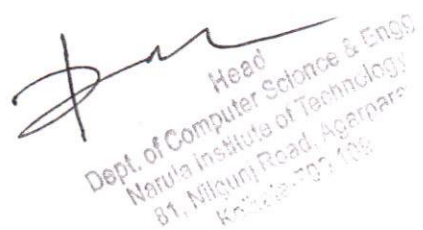 Head
Dept. of Computer Science & Engg
Narula Institute of Technology
81, Nilgunj Road, Agarpara
Kolkata-700 109